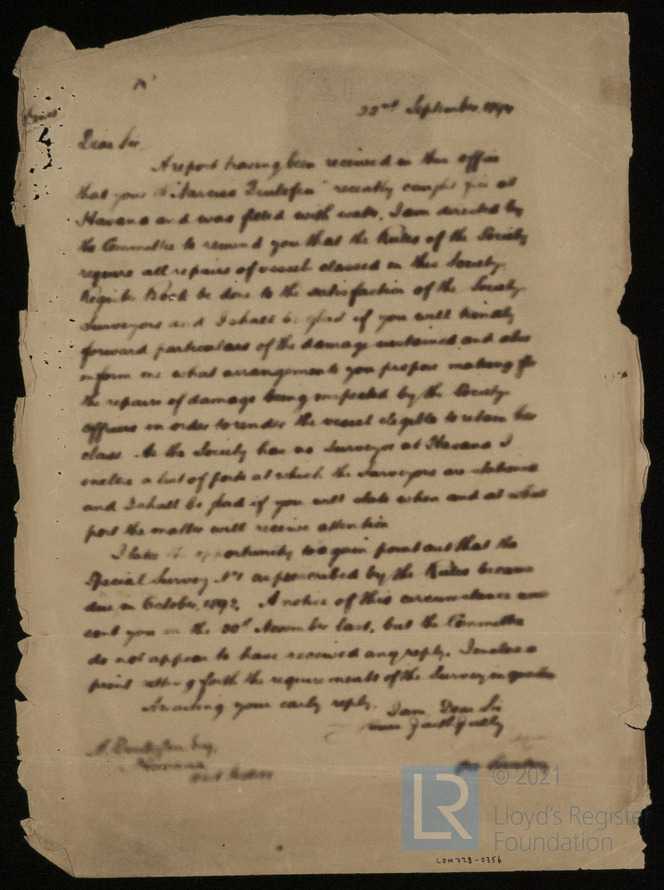 22nd September, 189
Dear Sir,
A report having been received in this office
that your recently caught fire at
Havana and was filled with water, I am directed by
the Committee to remind you that the Rules of the Society
require all repairs of vessels classed in this Society's
Register Book be done to the satisfaction of the Society's
Surveyors and I shall be glad if you will kindly
forward particulars of the damage sustained and also
inform me what arrangements you propose making for
the repairs of damage being inspected by the Society's
officers in order to render the vessel eligible to retain her
class. As the Society has no Surveyor at Havana I
enclose a list of ports at which the Surveyors are stationed
and I shall be glad if you will state when and at what
port the matter will receive attention
I take the opportunity to again point out that the
Special Survey No 1 as prescribed by the Rules became
due in October, 1892. A notice of this circumstance was
sent you on the November last, but the Committee
do not appear to have received any reply. I enclose a
print setting forth the requirements of the Survey in question
Awaiting your early reply,
I am, Dear Sir
Yours faithfully
Esq.
© 2021
LR
Lloyd's Register
Foundation
LON728-0356